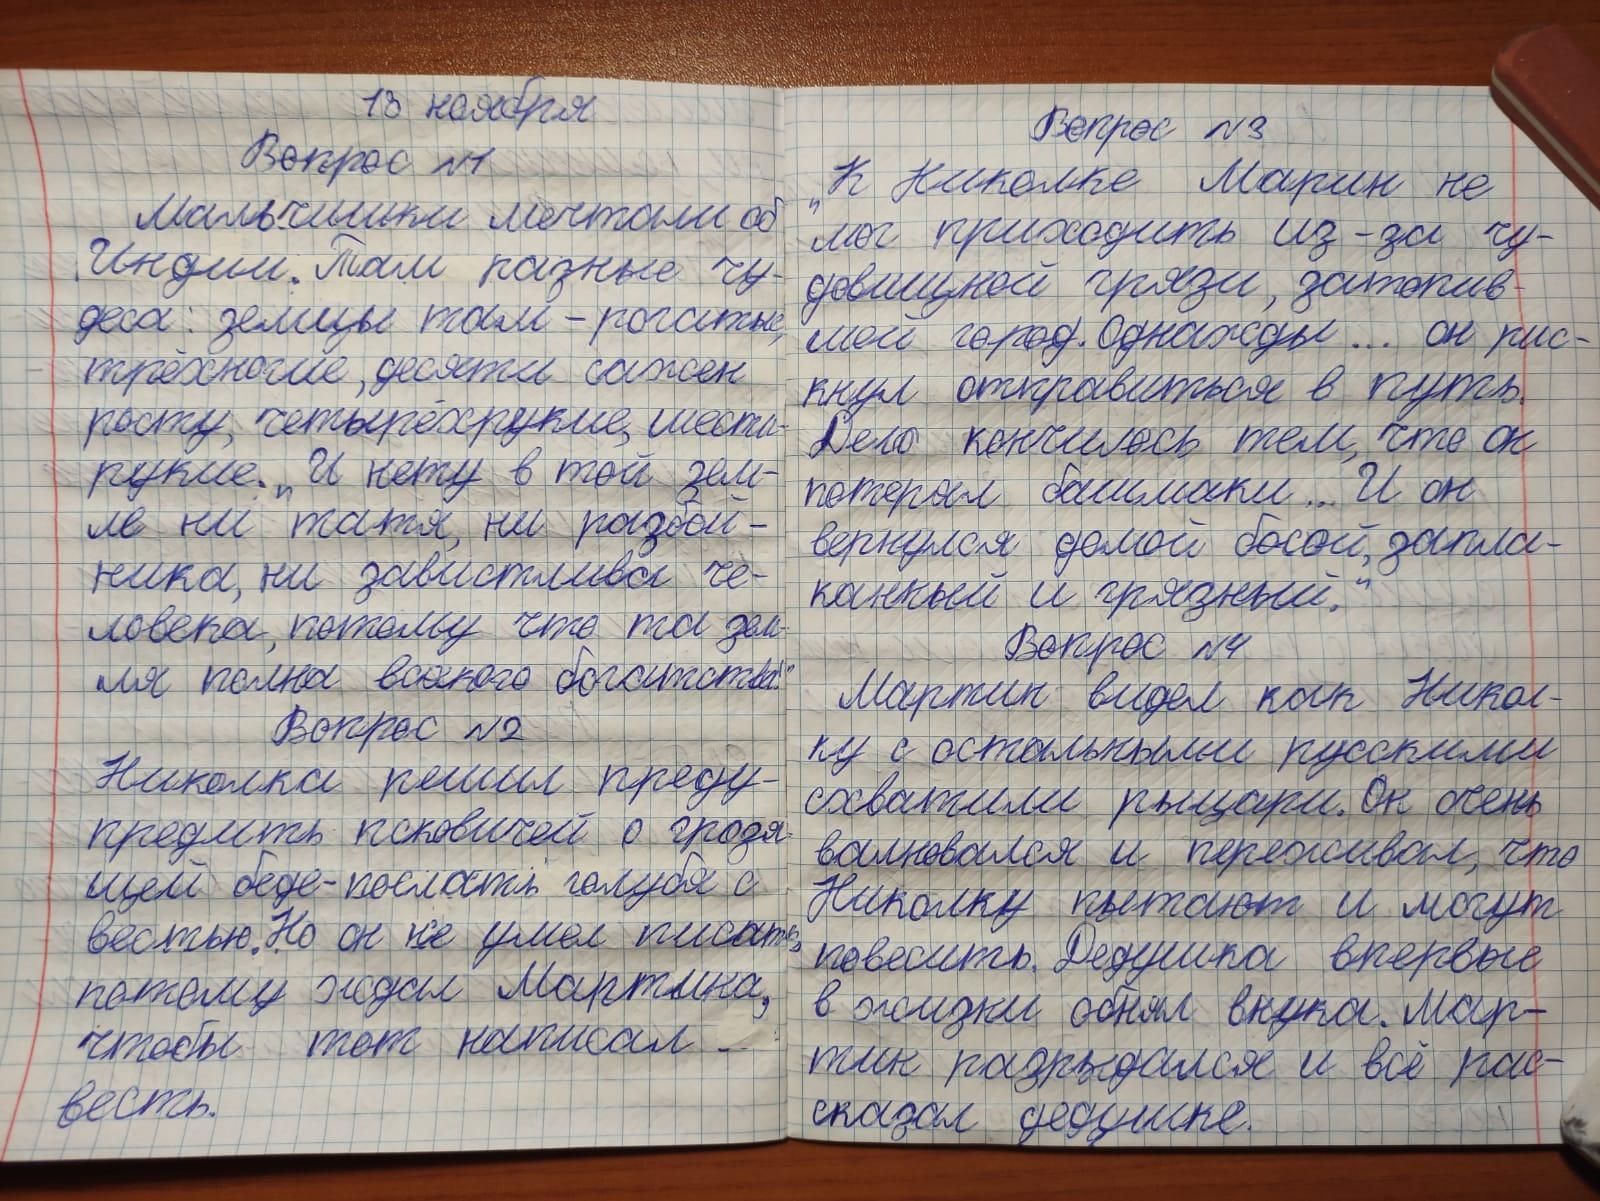 13 ноября
Вопрос №1
Мальчишки мечтали об
Индии. Там разные чу-
деса: земцы там – рогатые,
трёхногие, десяти сажен
росту, четырёхрукие, шести-
рукие. „И нету в той зем-
ле ни татя, ни разбой-
ника, ни завистлива че-
ловека, потому что та зем-
ля полна всякого богатства!"
Вопрос №2
Николка решил преду-
предить псковичей о грозя-
щей беде-послать голубя с
вестью. Но он не умел писать,
потому ждал Мартина,
чтобы тот написал
весть.
Вопрос №3
„К Николке Марин не
мог приходить из-за чу-
довищной грязи, затопив-
шей город. Однажды ... он рис-
кнул отправиться в путь.
Дело кончилось тем, что он
потерял башмаки ... И он
вернулся домой босой, запла-
канный и грязный."
Вопрос №4
Мартин видел как Никол-
ку с остальными русскими
схватили рыцари. Он очень
валновался и переживал, что
Николку пытают и могут
повесить. Дедушка впервые
в жизни обнял внука. Мар-
тин разрыдался и всё рас-
сказал дедушке.